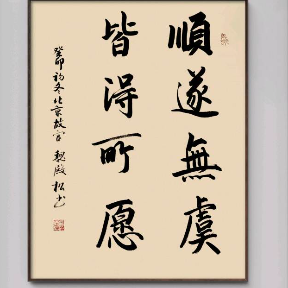 順遂無虞
皆得所愿
癸卯初冬北京故宫魏殿松书